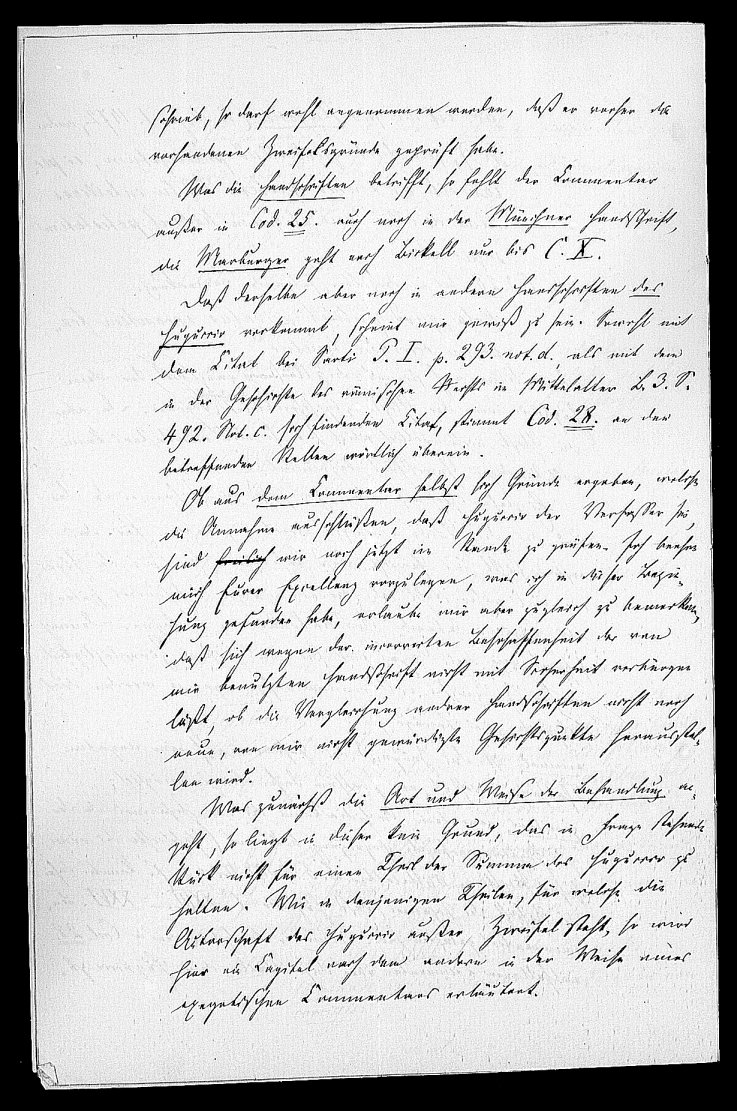 schrieb, so darf wohl angenommen werden, daß er vorher die
vorhandenen Zweifelsgründe geprüft habe.
Was die Handschriften betrifft, so fehlt der Commentar
außer in Cod. 25. auch noch in der Münchner Handschrift,
die Marburger geht nach Bickell nur bis C. X.
Daß derselbe aber noch in andern Handschriften des
Huguccio vorkommt, scheint mir gewiß zu sein. Sowohl mit
dem Citat bei Sarti P. I. p. 293. not. d. als mit dem
in der Geschichte des römischen Rechts im Mittelalter B. 3. S.
492. Not. c. sich findenden Citat, stimmt Cod. 28. an den
betreffenden Stellen wörtlich überein.
Ob aus dem Commentar selbst sich Gründe ergeben, welche
die Annahme ausschließen, daß Huguccio der Verfasser sei,
sind freilich wir noch jetzt im Stande zu prüfen. Ich beehre
mich Eurer Excellenz vorzulegen, was ich in dieser Bezie-
hung gefunden habe, erlaube mir aber zugleich zu bemerken,
daß sich wegen der incorrecten Beschaffenheit der von
mir benutzten Handschrift nicht mit Sicherheit verbürgen
läßt, ob die Vergleichung andrer Handschriften nicht noch
neue, von mir nicht gewürdigte Gesichtspunkte herausstel-
len wird.
Was zunächst die Art und Weise der Behandlung an-
geht, so liegt in dieser kein Grund, das in Frage stehende
Werk nicht für einen Theil der Summa des Huguccio zu
halten. Wie in denjenigen Theilen, für welche die
Autorschaft des Huguccio außer Zweifel steht, so wird
hier ein Capitel nach dem andern in der Weise eines
exegetischen Commentars erläutert.